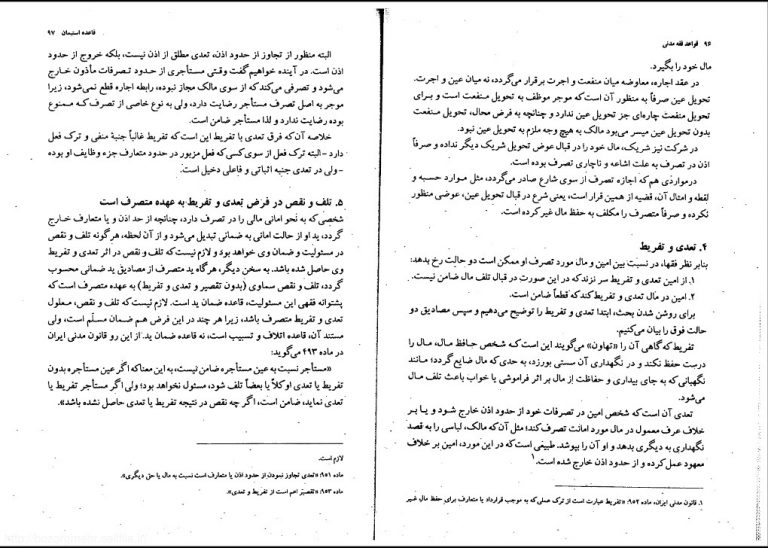 ۹۶ قواعد فقه مدنی
مال خود را بگیرد.
در عقد اجاره، معاوضه میان منفعت و اجرت برقرار می‌گردد، نه میان عین و اجرت.
تحویل عین صرفاً به منظور آن است که موجر موظف به تحویل منفعت است و برای
تحویل منفعت چاره‌ای جز تحویل عین ندارد و چنانچه به فرض محال، تحویل منفعت
بدون تحویل عین میسر می‌بود مالک به هیچ وجه ملزم به تحویل عین نبود.
در شرکت نیز شریک، مال خود را در قبال عوض تحویل شریک دیگر نداده و صرفاً
اذن در تصرف به علت اشاعه و ناچاری تصرف بوده است.
در مواردی هم که اجازه تصرف از سوی شارع صادر می‌گردد، مثل موارد حسبه و
لقطه و امثال آن، قضیه از همین قرار است، یعنی شرع در قبال تحویل عین، عوضی منظور
نکرده و صرفاً متصرف را مکلف به حفظ مال غیر کرده است.
۴. تعدی و تفریط
بنابر نظر فقها، در نسبت بین امین و مال مورد تصرف او ممکن است دو حالت رخ بدهد:
۱. از امین تعدی و تفریط سر نزند که در این صورت در قبال تلف مال ضامن نیست.
۲. امین در مال تعدی و تفریط کند که قطعاً ضامن است.
برای روشن شدن بحث، ابتدا تعدی و تفریط را توضیح می‌دهیم و سپس مصادیق دو
حالت فوق را بیان می‌کنیم.
تفریط که گاهی آن را «تهاون» می‌گویند این است که شخص حافظ مال، مال را
درست حفظ نکند و در نگهداری آن سستی بورزد، به حدی که مال ضایع گردد؛ مانند
نگهبانی که به جای بیداری و حفاظت از مال بر اثر فراموشی یا خواب باعث تلف مال
می‌شود.
تعدی آن است که شخص امین در تصرفات خود از حدود اذن خارج شود و یا بر
خلاف عرف معمول در مال مورد امانت تصرف کند؛ مثل آن که مالک، لباسی را به قصد
نگهداری به دیگری بدهد و او آن را بپوشد. طبیعی است که در این مورد، امین بر خلاف
معهود عمل کرده و از حدود اذن خارج شده است.۱
۱. قانون مدنی ایران، ماده ۹۵۲: «تفریط عبارت است از ترک عملی که به موجب قرارداد یا متعارف برای حفظ مال غیر
قاعده استیمان ۹۷
البته منظور از تجاوز از حدود اذن، تعدی مطلق از اذن نیست، بلکه خروج از حدود
اذن است. در آینده خواهیم گفت وقتی مستأجری از حدود تصرفات مأذون خارج
می‌شود و تصرفی می‌کند که از سوی مالک مجاز نبوده، رابطه اجاره قطع نمی‌شود، زیرا
موجر به اصل تصرف مستأجر رضایت دارد، ولی به نوع خاصی از تصرف که ممنوع
بوده رضایت ندارد و لذا مستأجر ضامن است.
خلاصه آن که فرق تعدی با تفریط این است که تفریط غالباً جنبهٔ منفی و ترک فعل
دارد - البته ترک فعل از سوی کسی که فعل مزبور در حدود متعارف جزء وظایف او بوده
- ولی در تعدی جنبه اثباتی و فاعلی دخیل است.
۵. تلف و نقص در فرض تعدی و تفریط به عهده متصرف است
شخصی که به نحو امانی مالی را در تصرف دارد، چنانچه از حد اذن و یا متعارف خارج
گردد، ید او از حالت امانی به ضمانی تبدیل می‌شود و از آن لحظه، هرگونه تلف و نقص
در مسئولیت و ضمان وی خواهد بود و لازم نیست که تلف و نقص در اثر تعدی و تفریط
وی حاصل شده باشد. به سخن دیگر، هرگاه ید متصرف از مصادیق ید ضمانی محسوب
گردد، تلف و نقص سماوی (بدون تقصیر و تعدی و تفریط) به عهده متصرف است که
پشتوانه فقهی این مسئولیت، قاعده ضمان ید است. لازم نیست که تلف و نقص، معلول
تعدی و تفریط متصرف باشد، زیرا هر چند در این فرض هم ضمان مسلم است، ولی
مستند آن، قاعده اتلاف و تسبیب است، نه قاعده ضمان ید. از این رو قانون مدنی ایران
در ماده ۴۹۳ می‌گوید:
«مستأجر نسبت به عین مستأجره ضامن نیست، به این معنا که اگر عین مستأجره بدون
تفریط یا تعدی او کلاً یا بعضاً تلف شود، مسئول نخواهد بود؛ ولی اگر مستأجر تفریط یا
تعدی نماید، ضامن است، اگر چه نقص در نتیجه تفریط یا تعدی حاصل نشده باشد».
لازم است.
ماده ۹۵۱: «تعدی تجاوز نمودن از حدود اذن یا متعارف است نسبت به مال یا حق دیگری».
ماده ۹۵۳: «تقصیر اعم است از تفریط و تعدی».